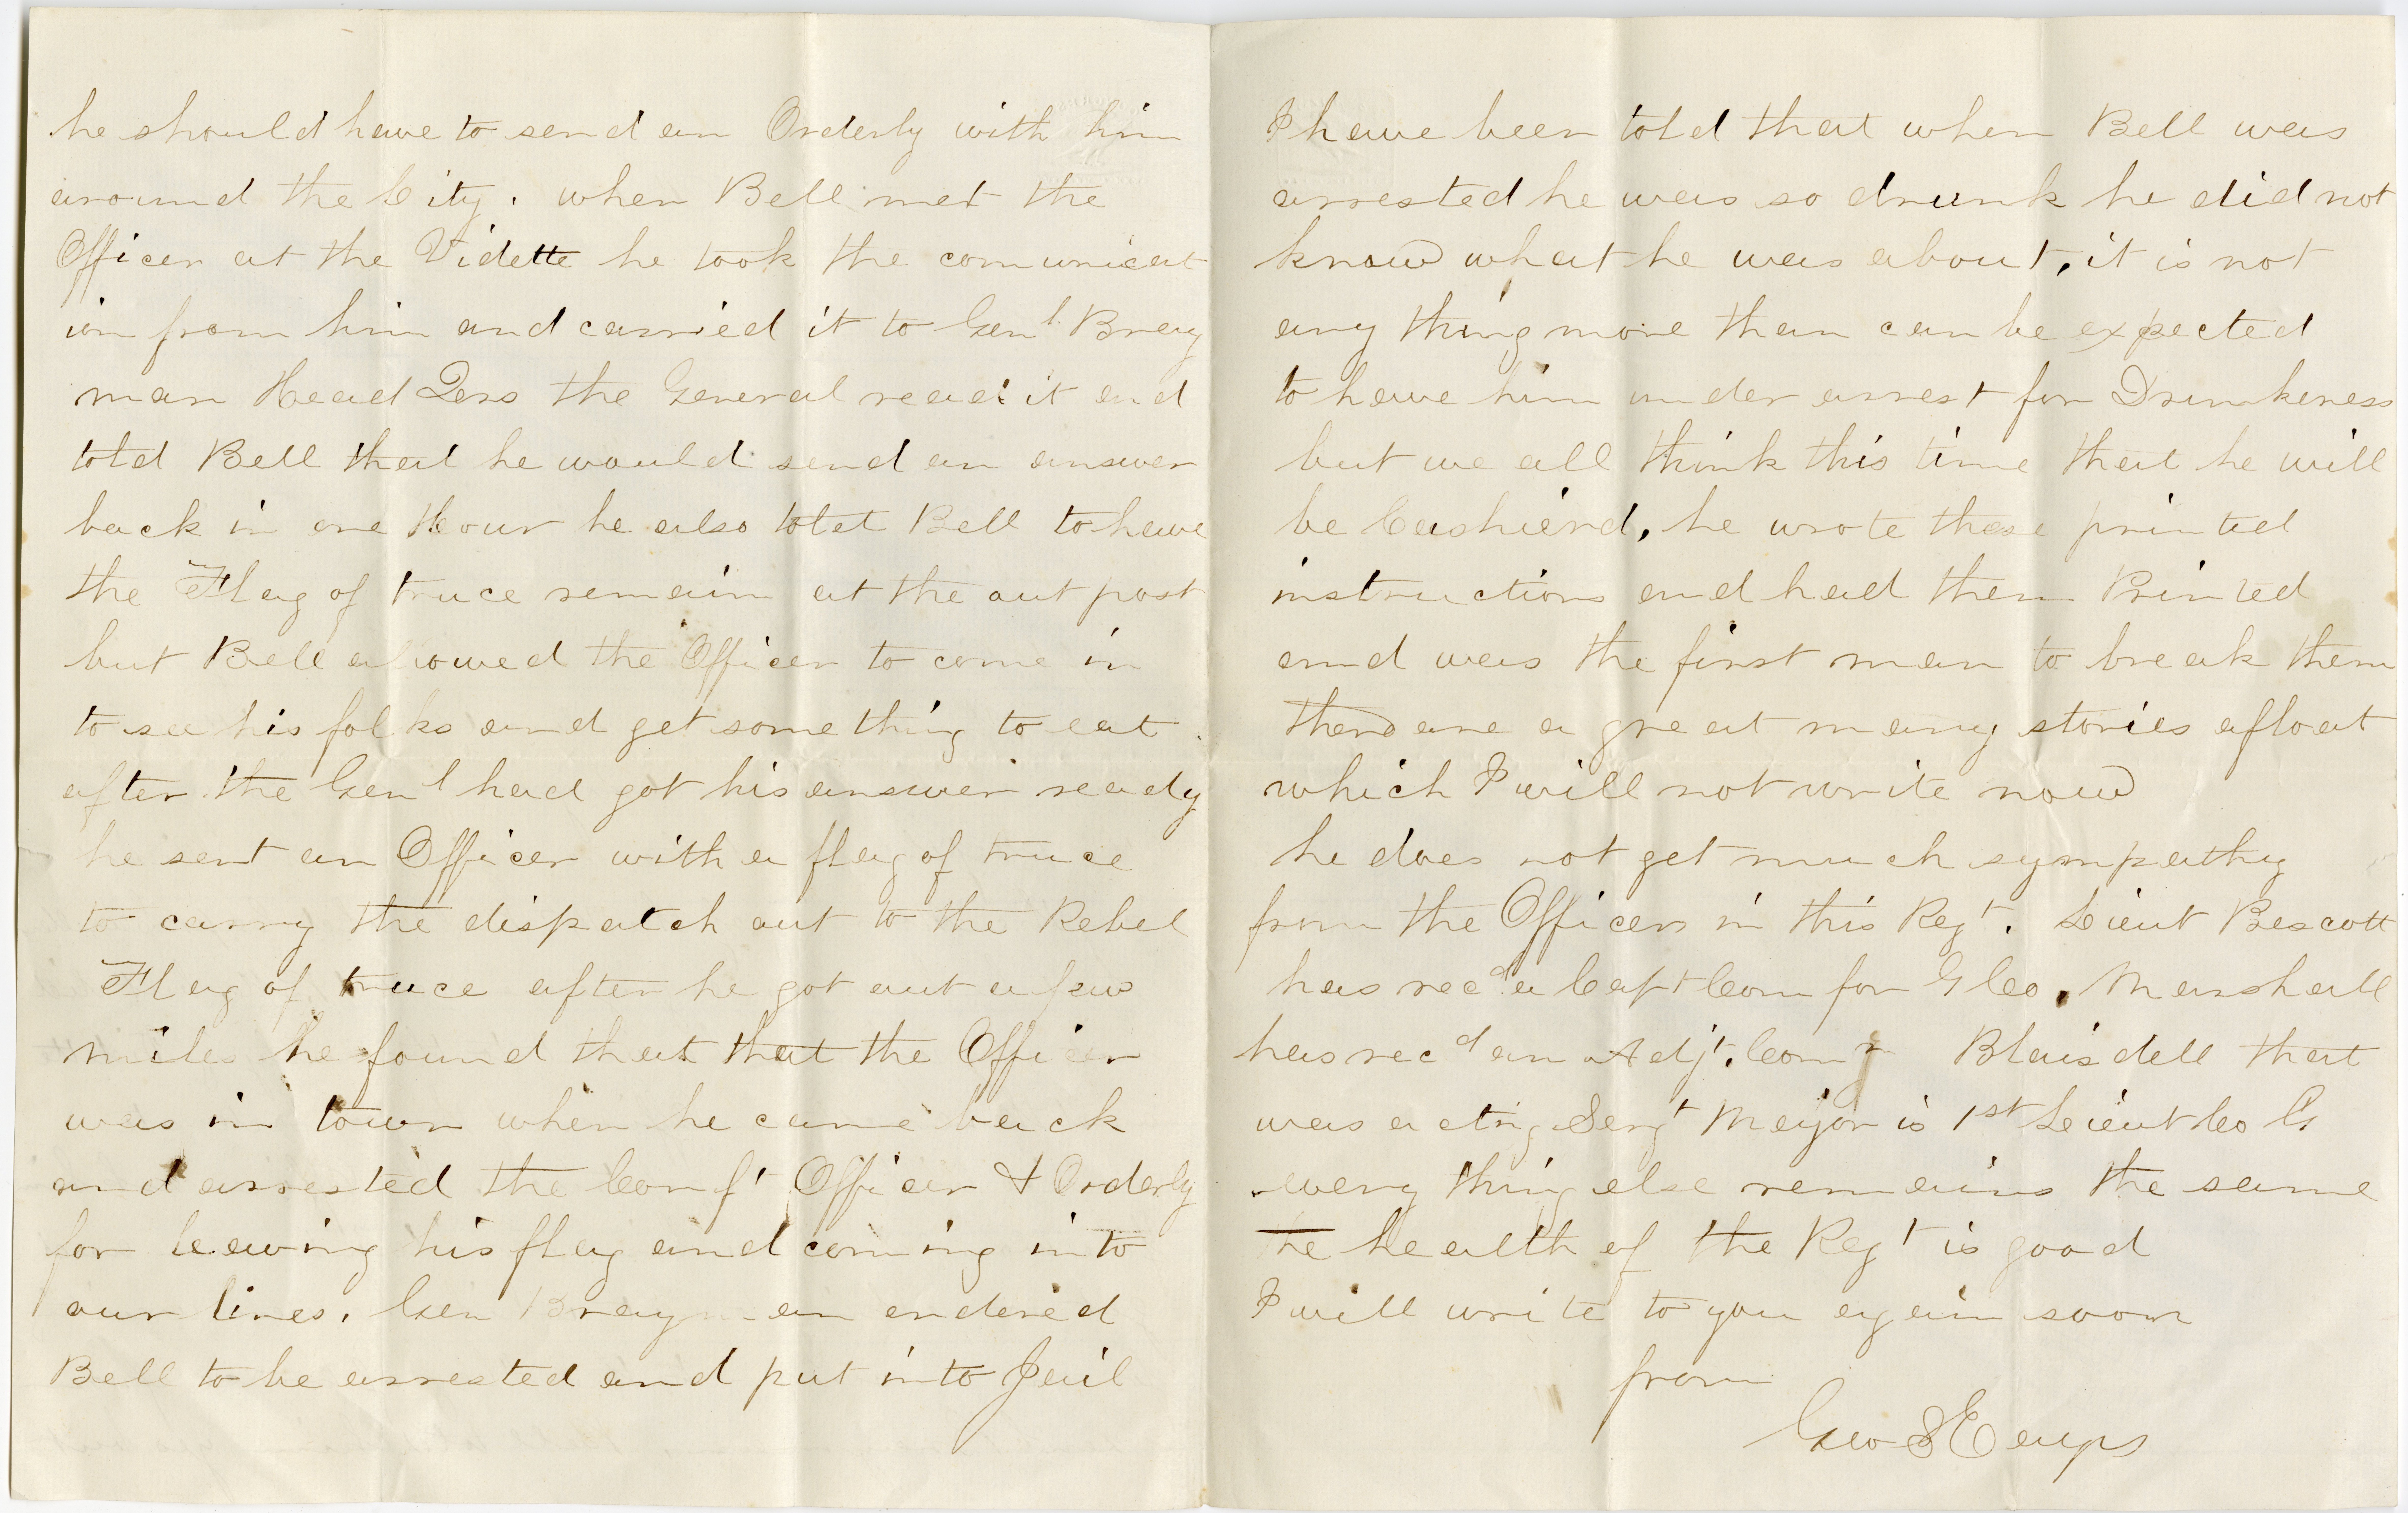 he should have to send an Orderly with him
around the City. when Bell met the
Officer at the Vidette he took the comunicat
ion from him and carried it to Genl. Bray
man Head Qrs the General read it and
told Bell that he would send an answer
back in one Hour he also tolet Bell to have
the Flag of truce remain at the out post
but Bell allowed the Officer to come in
to see his folks and get something to eat.
after the Genl had got his answer ready
he sent an Officer with a flag of truce
to carry the dispatch out to the Rebel
Flag of truce after he got out a few
miles he found that that the Officer
was in town when he came back
and arrested the Conf't Officer & Orderly
for leaving his flag and coming into
our lines. Gen Brayman ordered
Bell to be arrested and put into Jail
I have been told that when Bell was
arrested he was so drunk he did not
know what he was about, it is not
any thing more than can be expected
to have him under arrest for Drunkeness
but we all think this time that he will
be Cashierd, he wrote these printed
instructions and had them Printed
and was the first man to break them
there are a great many stories afloat
which I will not write now
he does not get much sympathy
from the Officers in this Regt. Lieut Bescott
has recd a Capt Com for G Co. Marshall
has recd an Adjt. Com Blaisdell that
was acting Sergt Major is 1st Lieut Co G
every thing else remains the same
the health of the Regt is good
I will write to you again soon
from
Geo S